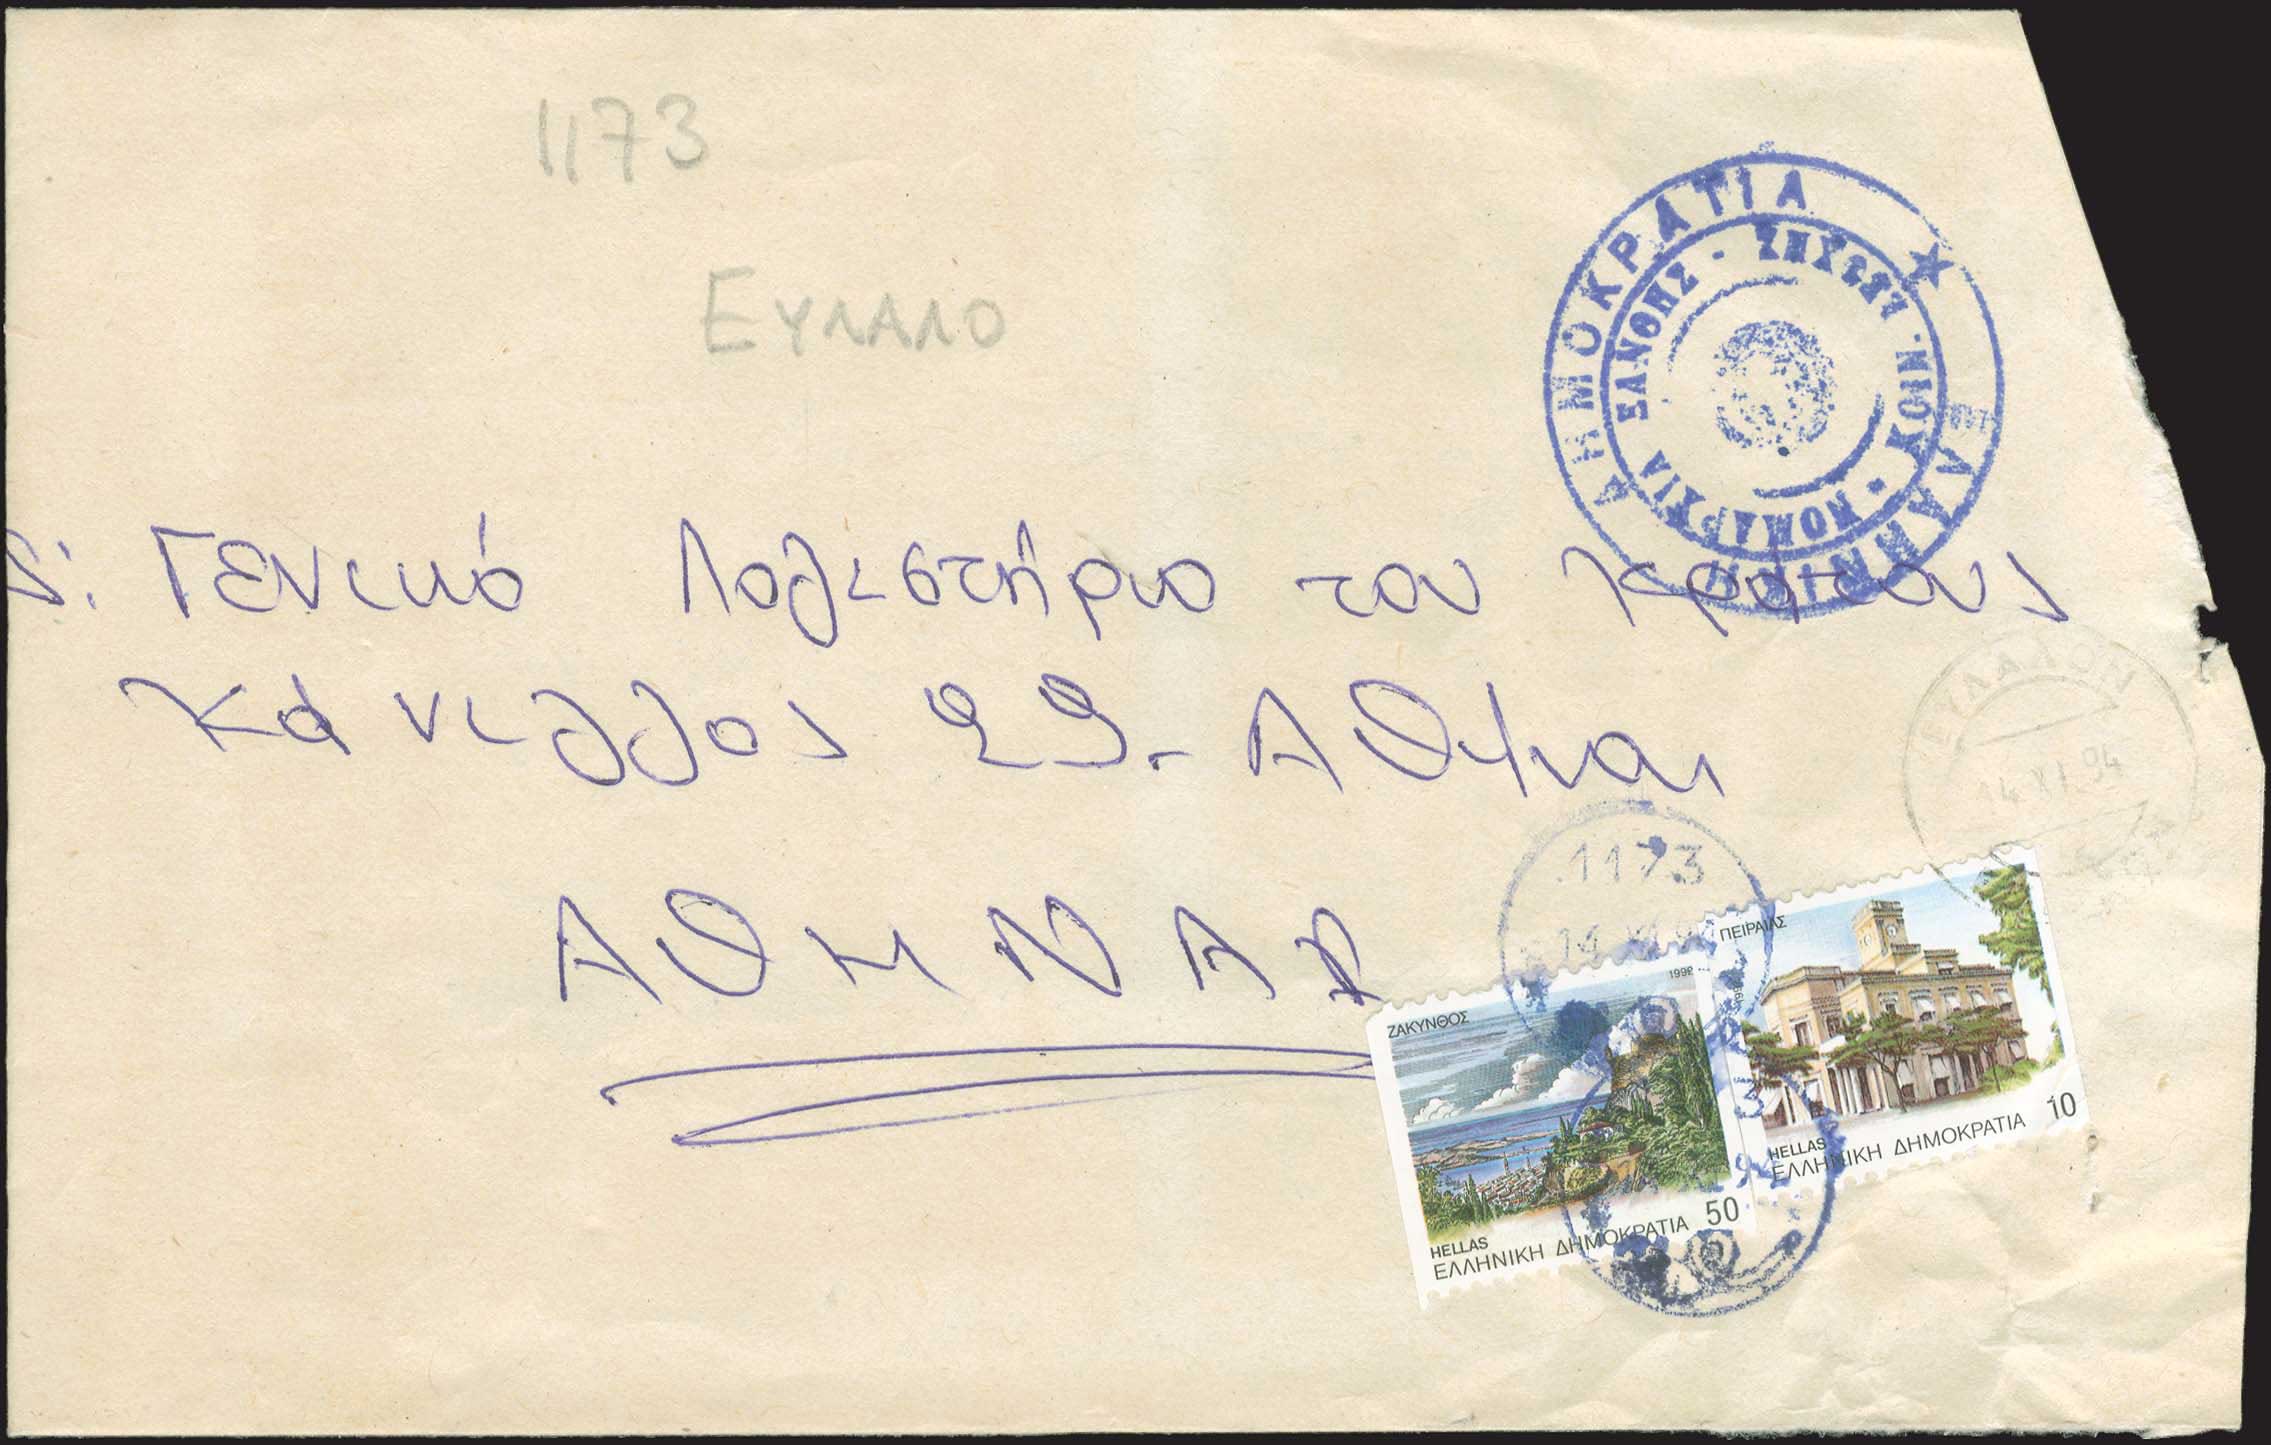 1173
ΕΥΛΑΛΟ
ΕΛΛΗΝΙΚΗ ΔΗΜΟΚΡΑΤΙΑ
ΝΟΜΑΡΧΙΑ ΞΑΝΘΗΣ
ΚΟΙΝ.
Γενικό Λογιστήριο του Κράτους
Κάνιγγος 29 - Αθήναι
ΑΘΗΝΑΣ
ΕΥΛΑΛΟΝ
14 XI 94
1173
14 XI 94
ΖΑΚΥΝΘΟΣ
1992
HELLAS
50
ΕΛΛΗΝΙΚΗ ΔΗΜΟΚΡΑΤΙΑ
ΠΕΙΡΑΙΑΣ
HELLAS
10
ΕΛΛΗΝΙΚΗ ΔΗΜΟΚΡΑΤΙΑ